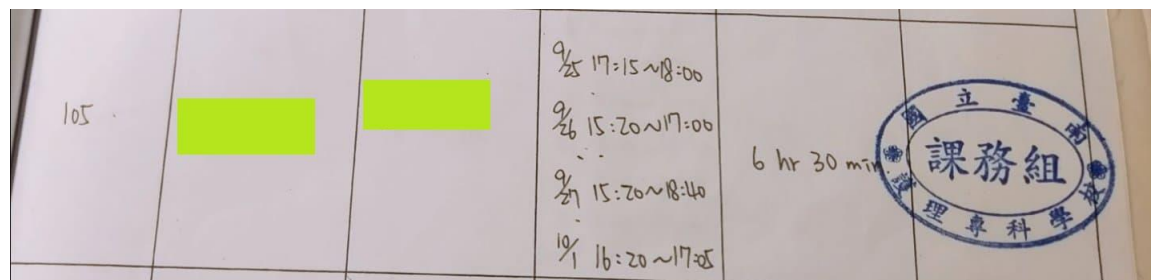 105
9/25 17:15~18:00
9/26 15:20~17:00
9/27 15:20~18:40
10/1 16:20~17:05
6 hr 30 min
國立臺南
課務組
護理專科學校